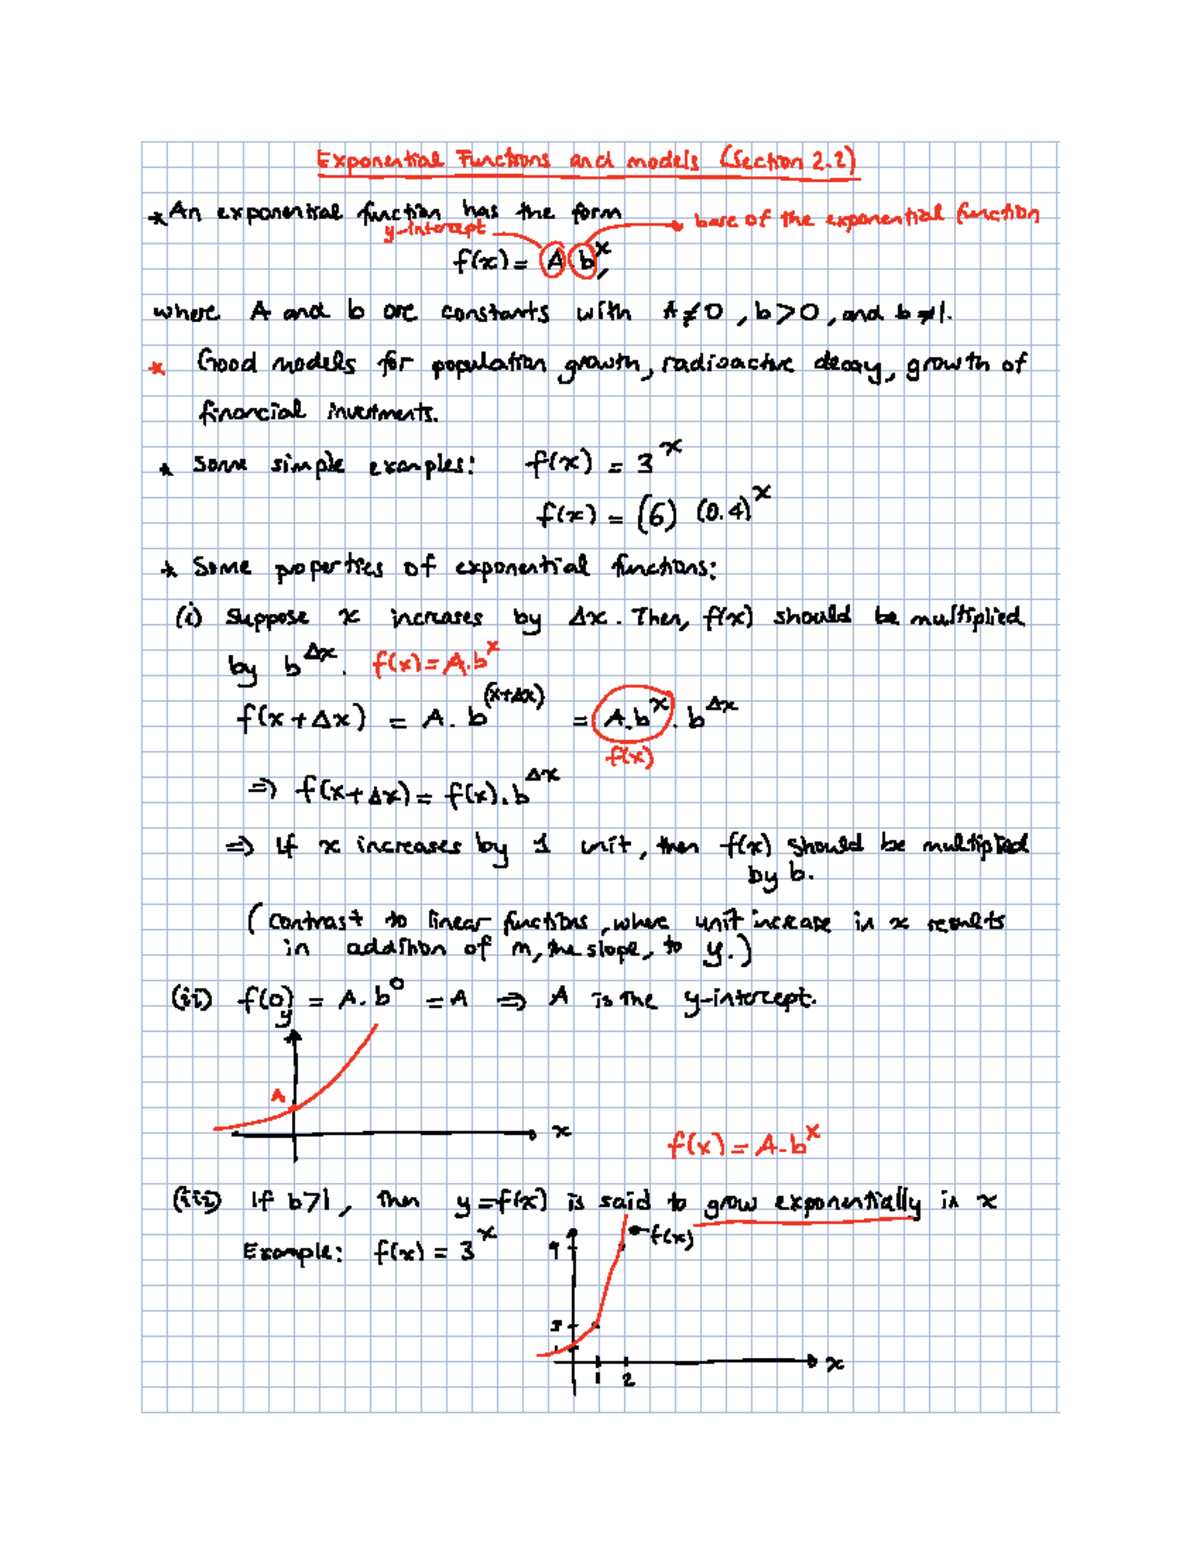 Exponential Functions and models (Section 2.2)
* An exponential function has the form
y-intercept
base of the exponential function
f(x) = A b^x,
where A and b are constants with A≠0, b>0, and b≠1.
* Good models for population growth, radioactive decay, growth of
financial investments.
* Some simple examples: f(x) = 3^x
f(x) = (6) (0.4)^x
* Some properties of exponential functions:
(i) Suppose x increases by Δx. Then, f(x) should be multiplied
by b^Δx. f(x) = A.b^x
f(x+Δx) = A. b^(x+Δx) = A.b^x . b^Δx
f(x)
⇒ f(x+Δx) = f(x).b^Δx
⇒ If x increases by 1 unit, then f(x) should be multiplied
by b.
(contrast to linear functions, where unit increase in x results
in addition of m, the slope, to y.)
(ii) f(0) = A. b^0 = A ⇒ A is the y-intercept.
y
A
x
f(x) = A.b^x
(iii) If b>1, then y=f(x) is said to grow exponentially in x
Example: f(x) = 3^x
f(x)
9
3
1
x
1 2